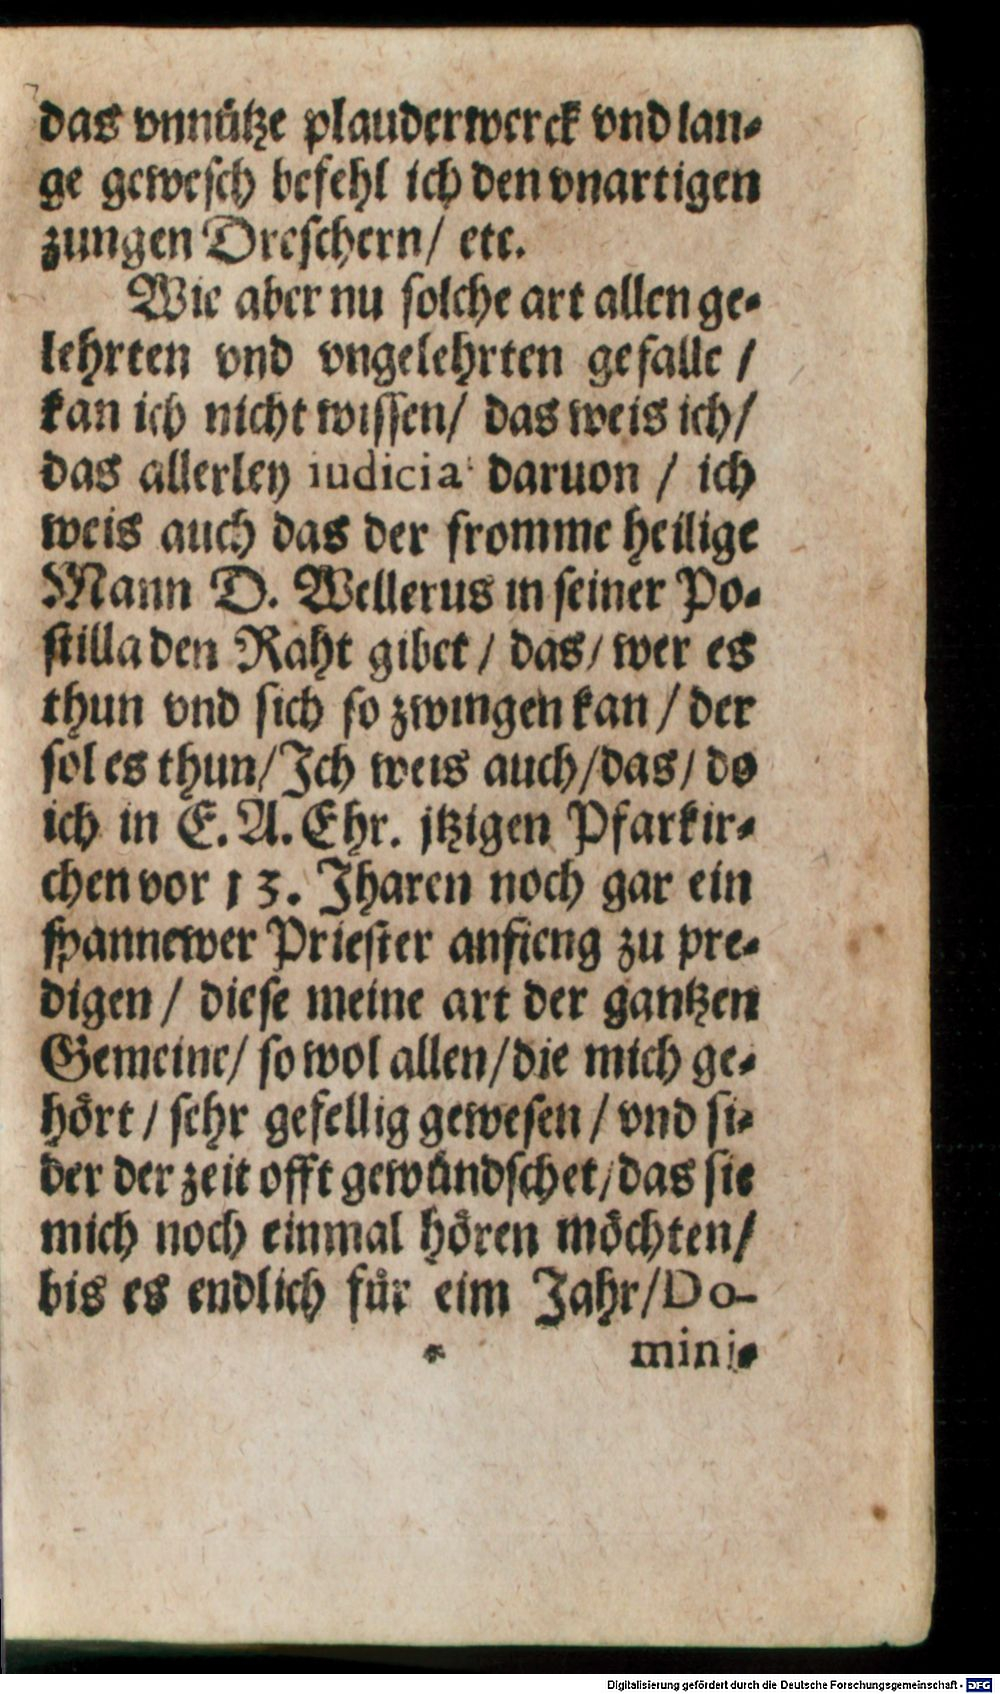 das vnnütze plauderwerck vnd lan-
ge gewesch befehl ich den vnartigen
zungen Dreschern/ etc.
Wie aber nu solche art allen ge-
lehrten vnd vngelehrten gefalle /
kan ich nicht wissen/ das weis ich/
das allerley iudicia daruon / ich
weis auch das der fromme heilige
Mann D. Wellerus in seiner Po-
stilla den Raht gibet / das/ wer es
thun vnd sich so zwingen kan / der
sol es thun/ Ich weis auch/das/ do
ich in E. A. Ehr. jtzigen Pfarkir-
chen vor 13. Jharen noch gar ein
spannewer Priester anfieng zu pre-
digen / diese meine art der gantzen
Gemeine/ so wol allen/die mich ge-
hört / sehr gefellig gewesen / vnd si-
der der zeit offt gewündschet/das sie
mich noch einmal hören möchten/
bis es endlich für eim Jahr/Do-
* mini-
Digitalisierung gefördert durch die Deutsche Forschungsgemeinschaft - DFG